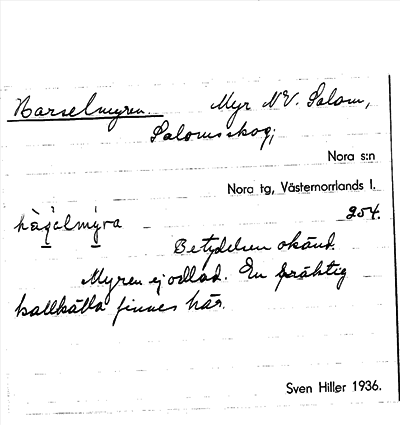 Harselmyren.
Myr NV. Salom,
Salomsskog;
Nora s:n
Nora tg, Västernorrlands l.
254.
Betydelsen okänd.
Myren ej odlad. En präktig
kallkälla finnes här.
Sven Hiller 1936.